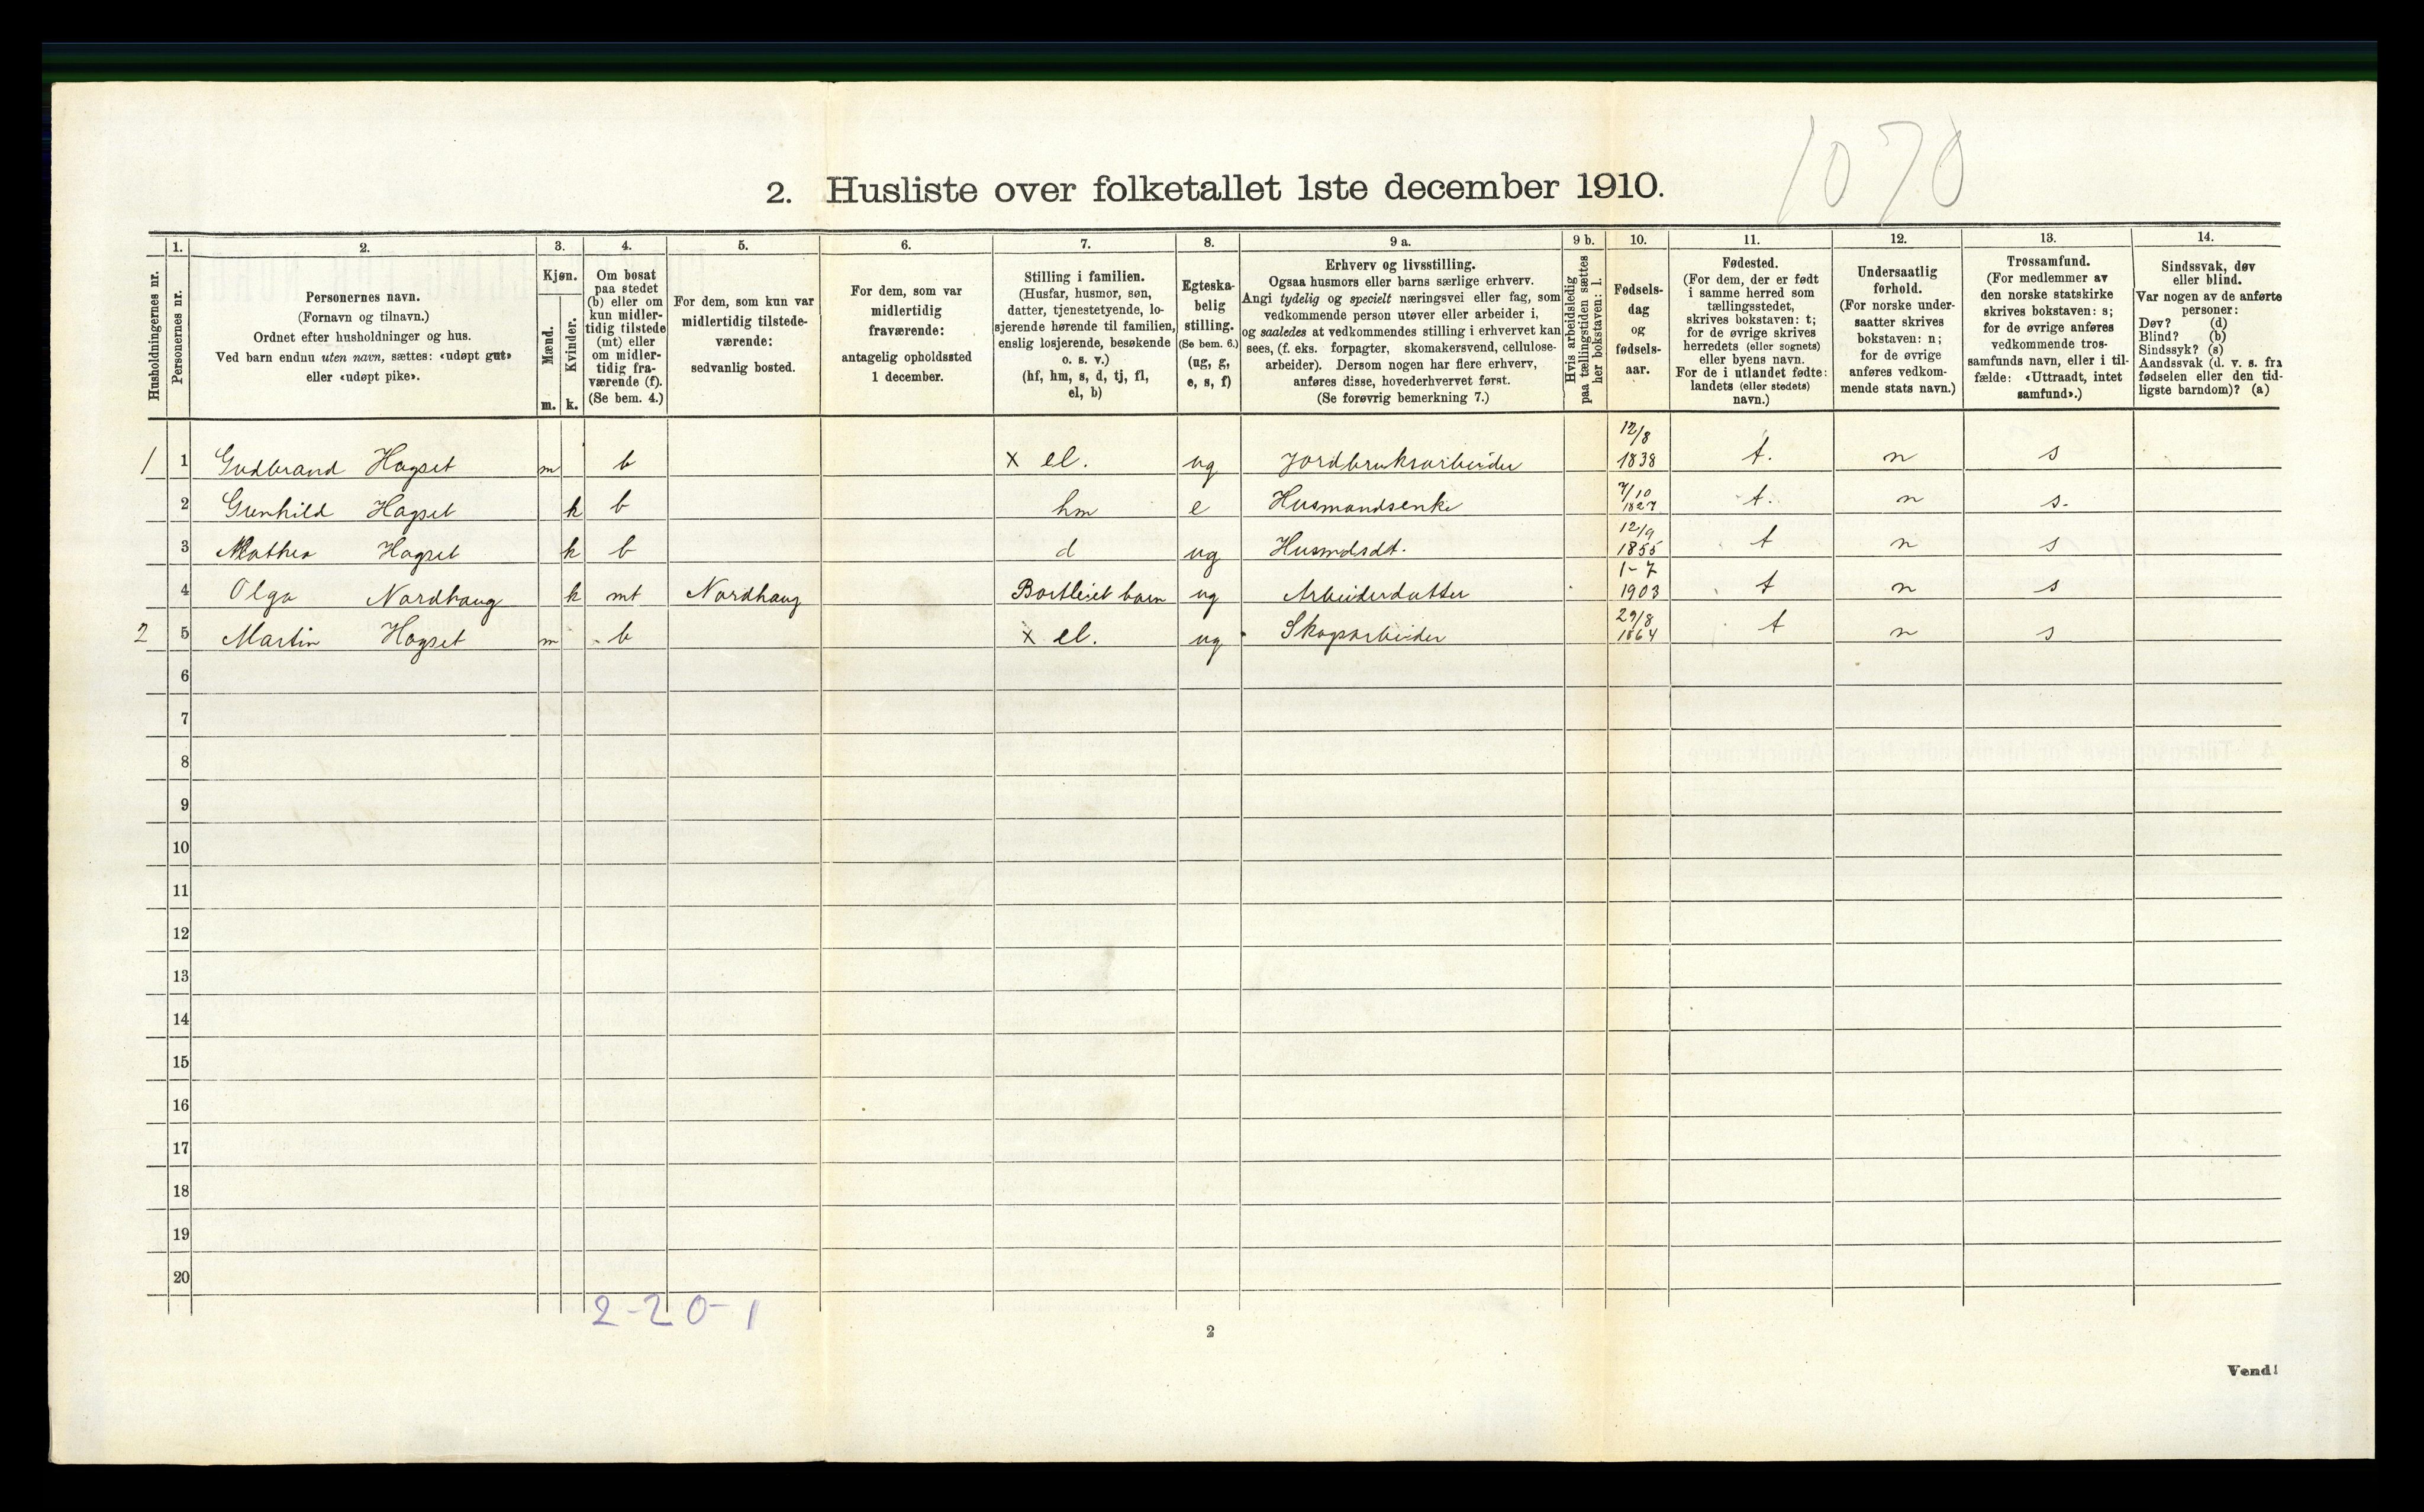 1070
2. Husliste over folketallet 1ste december 1910.
Husholdningernes nr.
1. Personernes nr.
2. Personernes navn.
(Fornavn og tilnavn.)
Ordnet efter husholdninger og hus.
Ved barn endnu uten navn, sættes: «udøpt gut»
eller «udøpt pike».
3. Kjøn.
Mænd. m.
Kvinder. k.
4. Om bosat
paa stedet
(b) eller om
kun midler-
tidig tilstede
(mt) eller
om midler-
tidig fra-
værende (f).
(Se bem. 4.)
5. For dem, som kun var
midlertidig tilstede-
værende:
sedvanlig bosted.
6. For dem, som var
midlertidig
fraværende:
antagelig opholdssted
1 december.
7. Stilling i familien.
(Husfar, husmor, søn,
datter, tjenestetyende, lo-
sjerende hørende til familien,
enslig losjerende, besøkende
o. s. v.)
(hf, hm, s, d, tj, fl,
el, b)
8. Egteska-
belig
stilling.
(Se bem. 6.)
(ug, g,
e, s, f)
9 a. Erhverv og livsstilling.
Ogsaa husmors eller barns særlige erhverv.
Angi tydelig og specielt næringsvei eller fag, som
vedkommende person utøver eller arbeider i,
og saaledes at vedkommendes stilling i erhvervet kan
sees, (f. eks. forpagter, skomakersvend, cellulose-
arbeider). Dersom nogen har flere erhverv,
anføres disse, hovederhvervet først.
(Se forøvrig bemerkning 7.)
9 b. Hvis arbeidsledig
paa tællingstiden sættes
her bokstaven: l.
10. Fødsels-
dag
og
fødsels-
aar.
11. Fødested.
(For dem, der er født
i samme herred som
tællingsstedet,
skrives bokstaven: t;
for de øvrige skrives
herredets (eller sognets)
eller byens navn.
For de i utlandet fødte:
landets (eller stedets)
navn.)
12. Undersaatlig
forhold.
(For norske under-
saatter skrives
bokstaven: n;
for de øvrige
anføres vedkom-
mende stats navn.)
13. Trossamfund.
(For medlemmer av
den norske statskirke
skrives bokstaven: s;
for de øvrige anføres
vedkommende tros-
samfunds navn, eller i til-
fælde: «Uttraadt, intet
samfund».)
14. Sindssvak, døv
eller blind.
Var nogen av de anførte
personer:
Døv? (d)
Blind? (b)
Sindssyk? (s)
Aandssvak (d. v. s. fra
fødselen eller den tid-
ligste barndom)? (a)
1 1 Gudbrand Hagset m b x el. ug Jordbruksarbeider 12/8 1838 t. n s
2 Gunhild Hagset k b hm e Husmandsenke 7/10 1827 t. n s.
3 Mathea Hagset k b d ug Husmdsdt. 12/9 1855 t n s
4 Olga Nordhaug k mt Nordhaug Bortleiet barn ug Arbeiderdatter 1-7 1903 t n s
2 5 Martin Hagset m b x el. ug Skogsarbeider 29/8 1864 t n s
6
7
8
9
10
11
12
13
14
15
16
17
18
19
20
2-2 0-1
2
Vend!